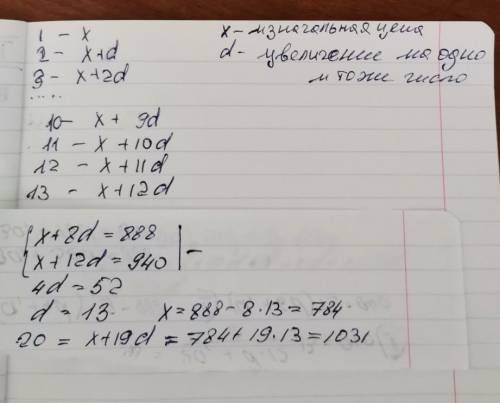 1 - x
2 - x+d
3 - x+2d
.....
10 - x + 9d
11 - x +10d
12 - x+11d
13 - x+12d
x - изначальная цена
d - увеличение на одно
и тоже число
{x+8d = 888
{x+12d = 940 | -
4d = 52
d = 13 x = 888 - 8·13 = 784.
20 = x+19d = 784 + 19·13 = 1031